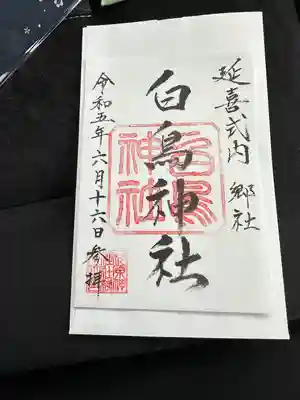 延喜式内 郷社
白鳥神社
令和五年六月十六日参拝